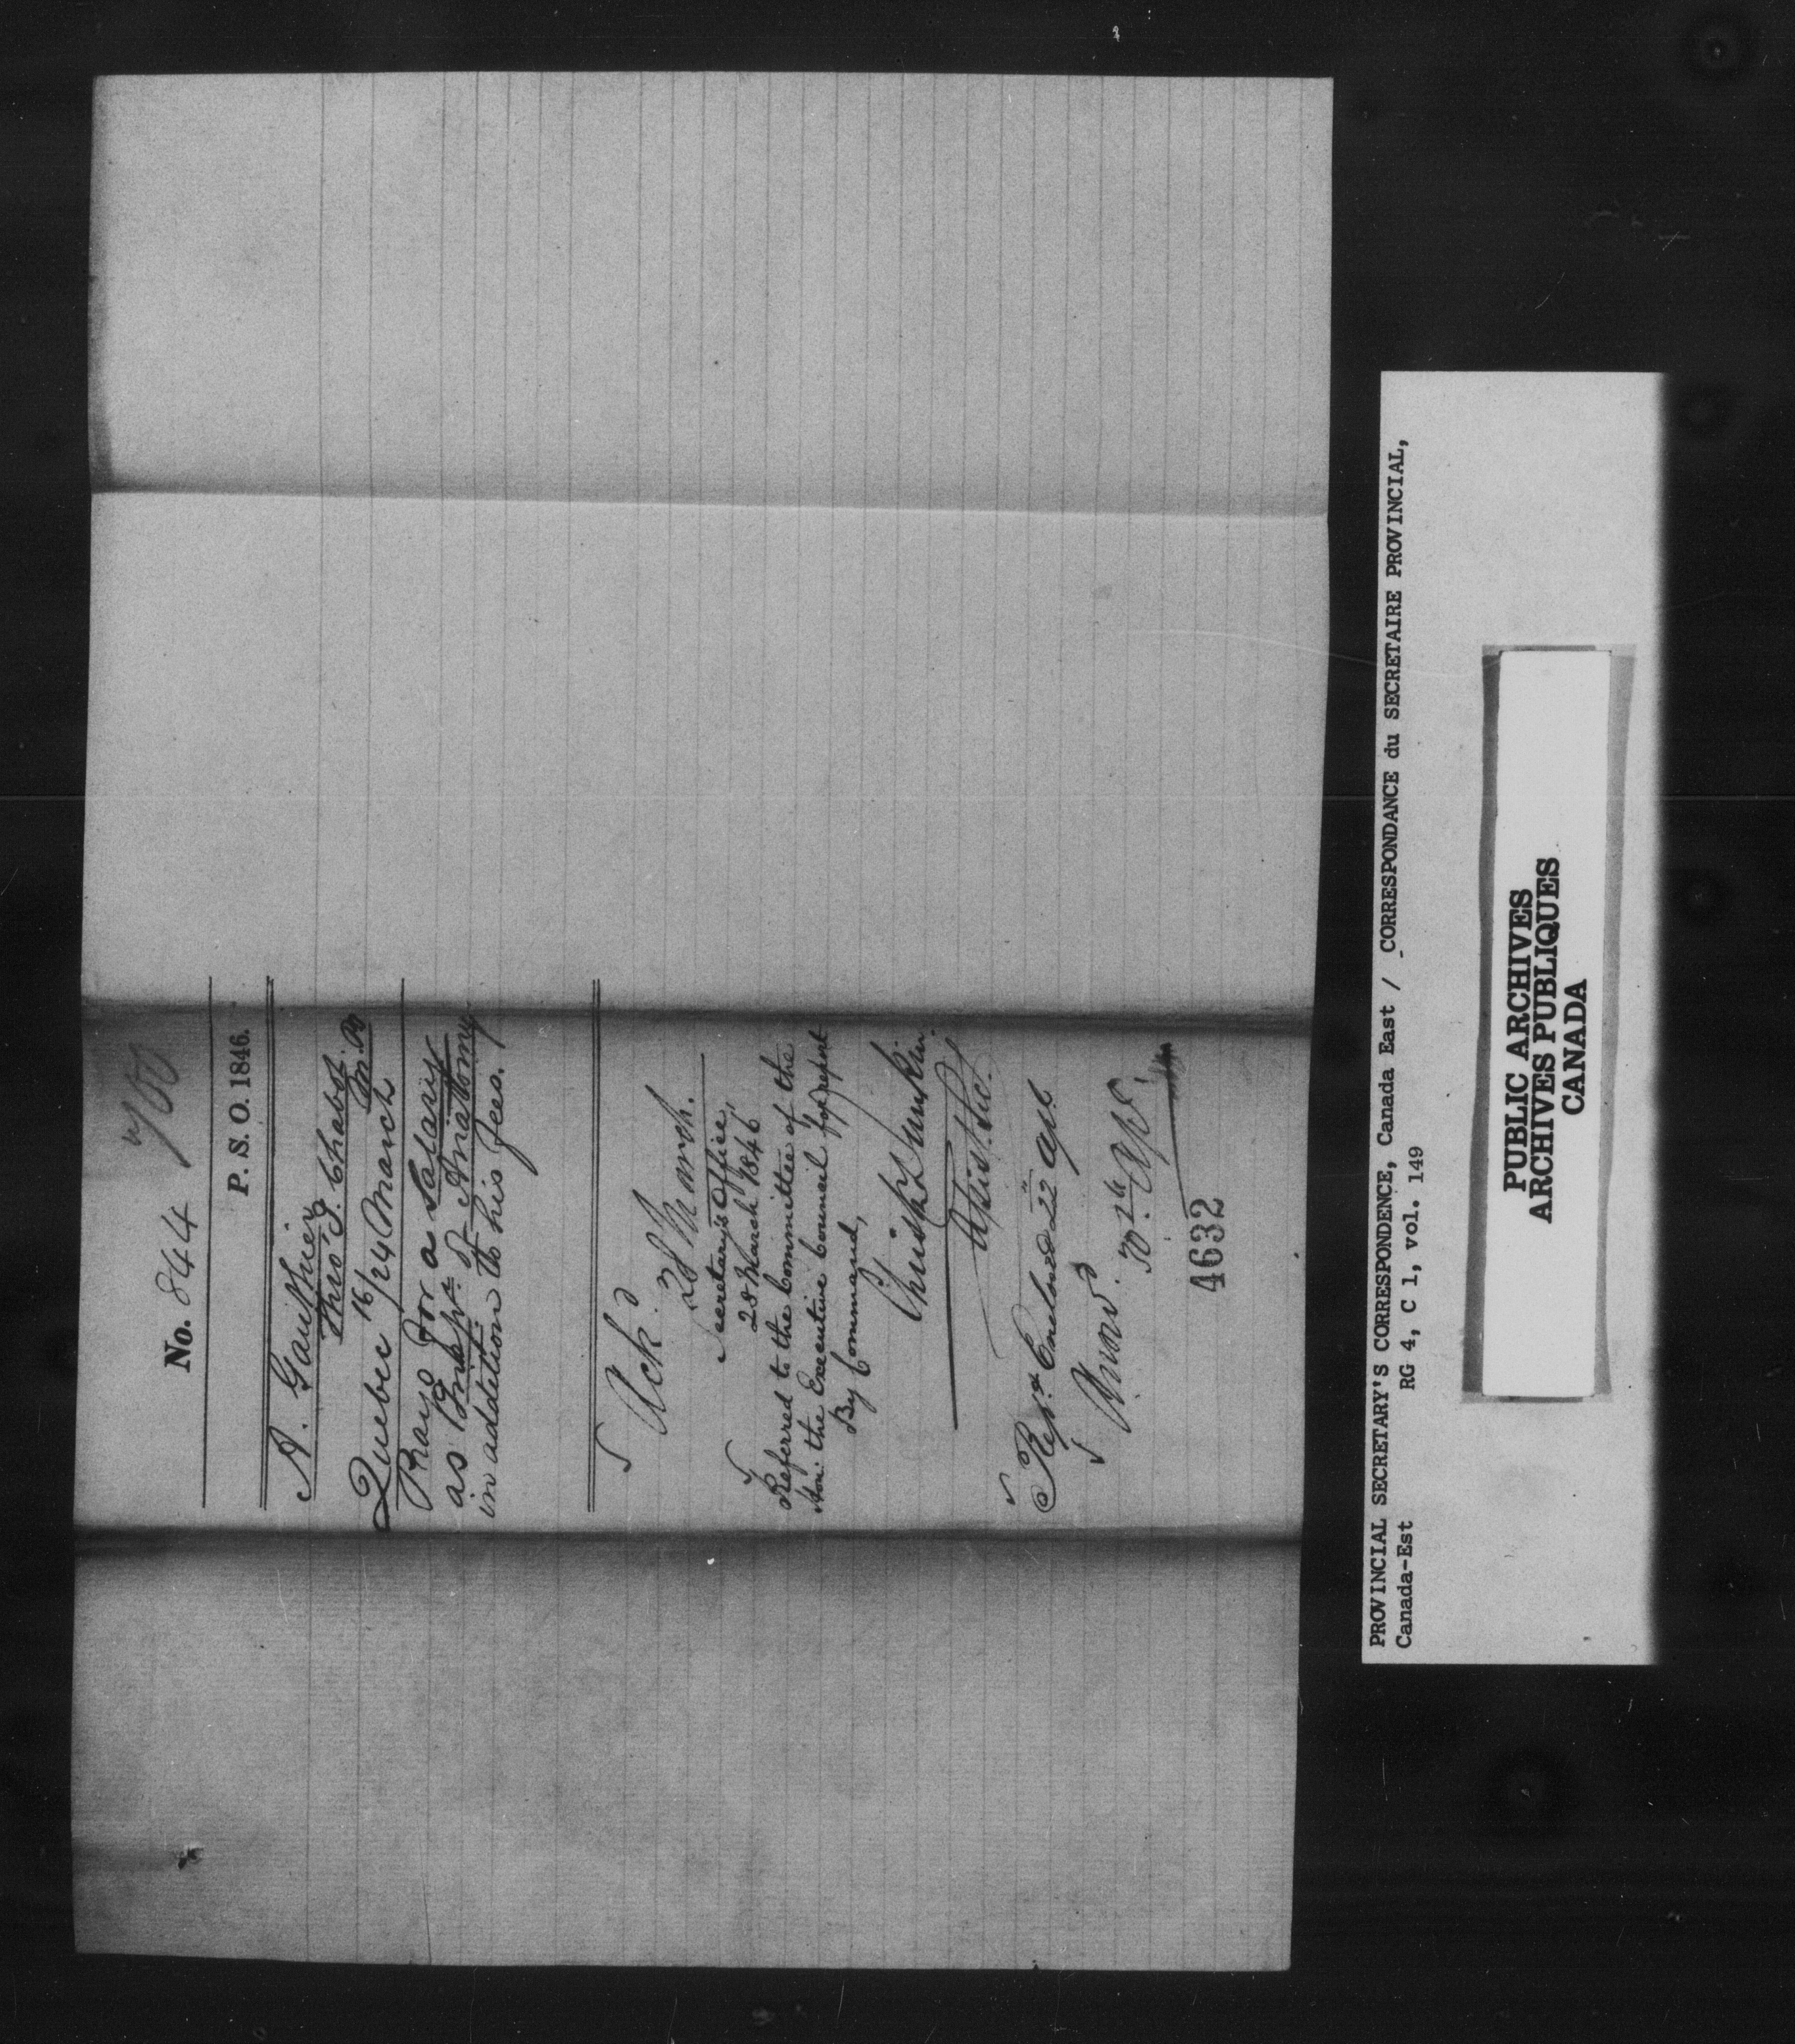 No. 844
700
P. S. O. 1846.
A. Gauthier
thro' J. Chabot
M. P.
Quebec 16/24 March
Prays for a Salary
as Inspr. of Anatomy
in addition to his fees.
Ackd.
28 March.
Secretary's Office,
28 March 1846
Referred to the Committee of the
Hon: the Executive Council for report
By Command,
Christ Dunkin
Assist. Sec.
Rept. Enclosed 22 Apl
Answd.
30 Apl.
4632
PROVINCIAL SECRETARY'S CORRESPONDENCE, Canada East / CORRESPONDANCE du SECRETAIRE PROVINCIAL,
Canada-Est RG 4, C 1, vol. 149
PUBLIC ARCHIVES
ARCHIVES PUBLIQUES
CANADA